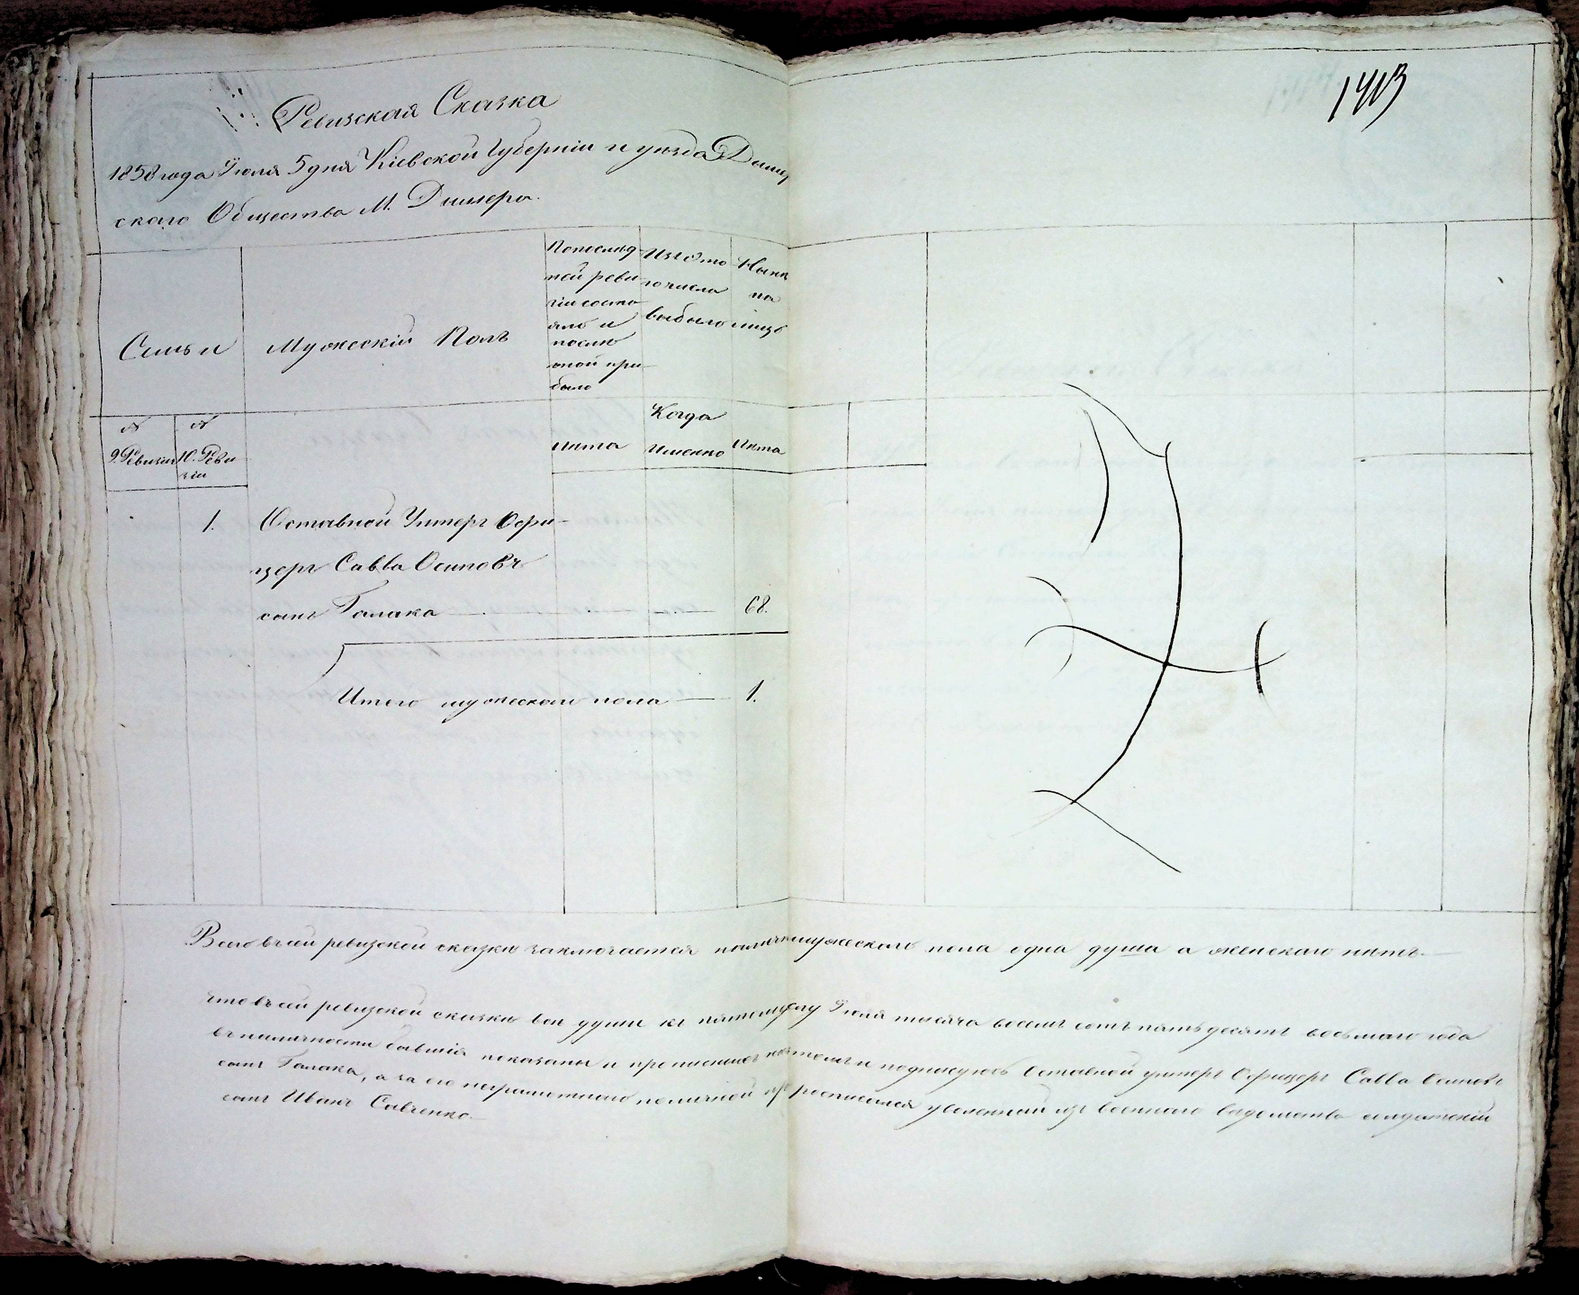 1413
Ревизская Сказка
1858 года Июля 5 дня Кіевской Губерніи и уѣзда Дымер
скаго Общества М. Димера.
Семьи
Мужескій Полъ
По послѣд
ней реви
зіи состо
яло и
послѣ
оной при
было
Изъ Это
го числа
выбыло
Нынѣ
на
лицо
№
9. Ревизіи
№
10. Реви
зіи
Лѣта
Когда
Именно
Лѣта
1. Отставной Унтеръ Офи-
церъ Савва Осиповъ
сынъ Галака 68.
Итого мужескаго пола 1.
Всего въ сей ревизской сказкѣ заключается наличныхъ мужескаго пола одна душа а женскаго нѣтъ
что въ сей ревизской сказкѣ все души къ пятому Июля тысяча восемь сотъ пятьдесятъ восьмаго года
въ наличности бывшія показаны и прописныхъ нѣтъ подписуюсь Отставной унтеръ Офицеръ Савва Осиповъ
сынъ Галака, а за его неграмотнаго по личной просьбѣ росписался уволенный изъ военнаго вѣдомства солдатскій
сынъ Иванъ Савченко